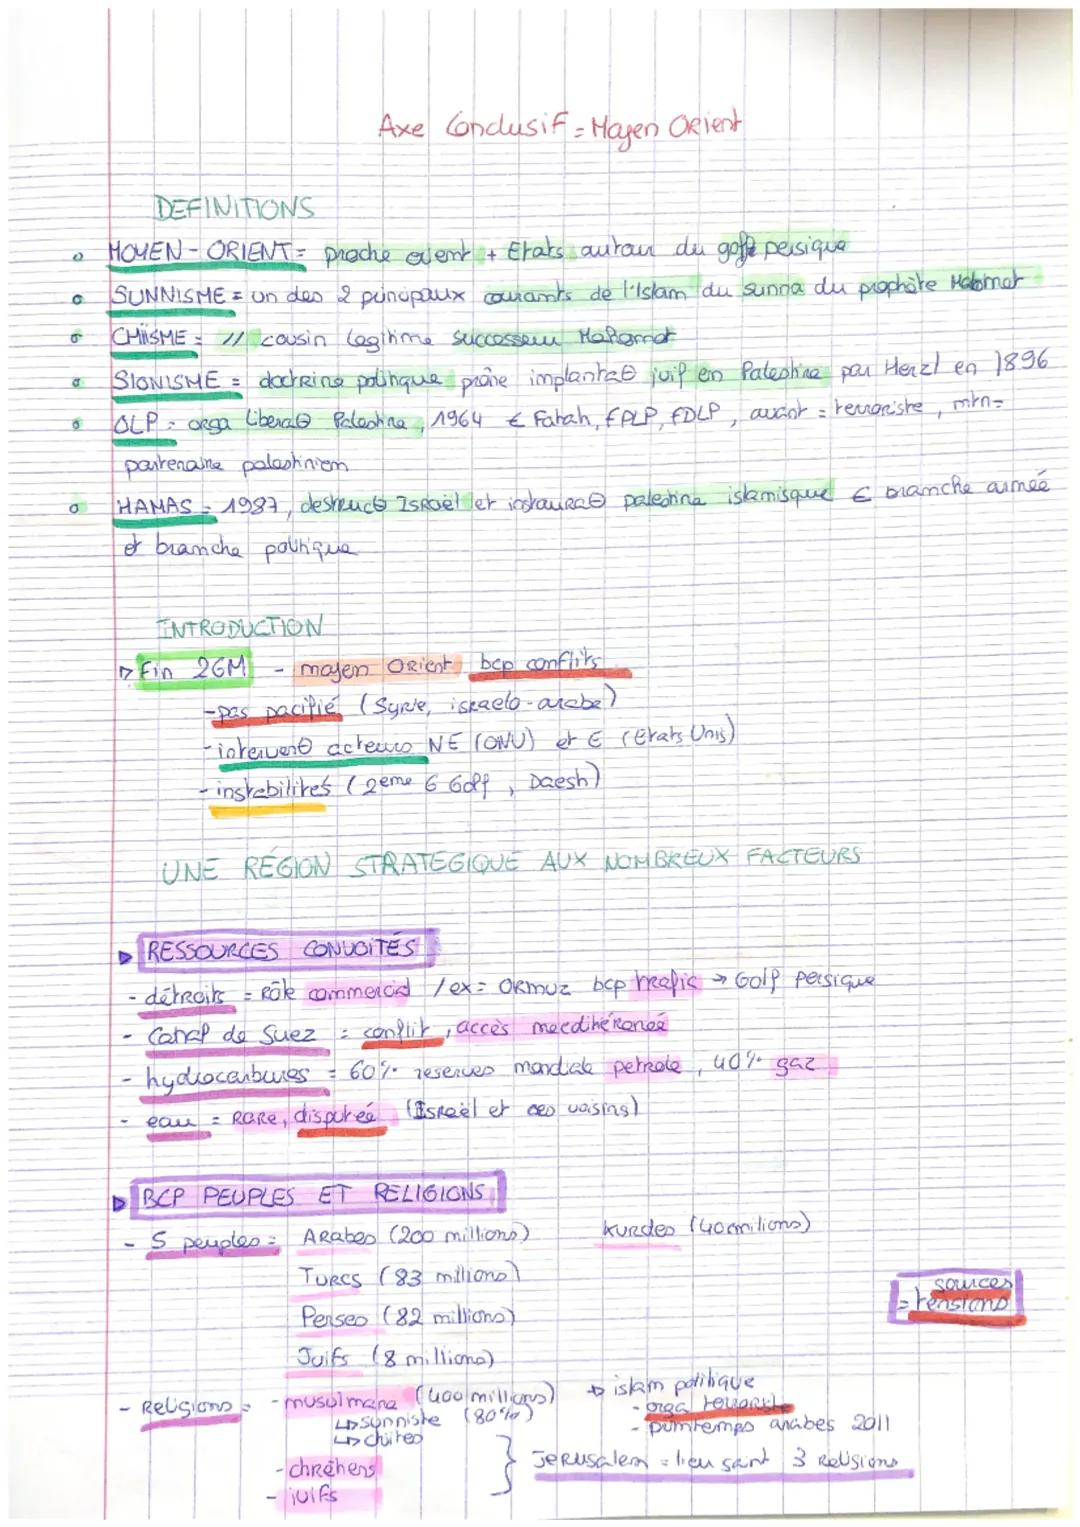 Axe Conclusif = Moyen Orient
DEFINITIONS
MOYEN-ORIENT = proche orient + Etats autour du golfe persique
SUNNISME = un des 2 principaux courants de l'Islam du sunna du prophète Mahomet
CHIISME = // cousin legitime successeur Mahomet
SIONISME = doctrine politique prône implantaΘ juif en Palestine par Herzl en 1896
OLP = orga liberaΘ Palestine, 1964 € Fatah, FPLP, FDLP, avant = terroriste, mtn =
partenaire palestinien
HAMAS = 1987, destrucΘ Israël et instauraΘ palestine islamisque € branche armée
et branche politique
INTRODUCTION
▷ Fin 2GM - moyen Orient bcp conflits
- pas pacifié (Syrie, israelo-arabe)
- intervenΘ acteurs NE (ONU) et E (Etats Unis)
- instabilités (2eme G Golf, Daesh)
UNE RÉGION STRATEGIQUE AUX NOMBREUX FACTEURS
▷ RESSOURCES CONVOITÉS
- détroits = Rôle commercial / ex = ORMUZ bcp trafic → Golf persique
- Canal de Suez = conflit, accès mediterranée
- hydrocarbures = 60% reserves mondiale petrole, 40% gaz
- eau = RARE, disputée (Israël et ces voisins)
▷ BCP PEUPLES ET RELIGIONS
- 5 peuples = Arabes (200 millions) Kurdes (40 milions)
Turcs (83 millions)
Perses (82 millions)
Juifs (8 millions)
sources
= tensions
- Religions = - musulmans (400 millions) ↳ islam politique
↳ sunniste (80%) - orga terroriste
↳ chiites - printemps arabes 2011
- chrétiens } Jerusalem = lieu saint 3 Religions
- juifs